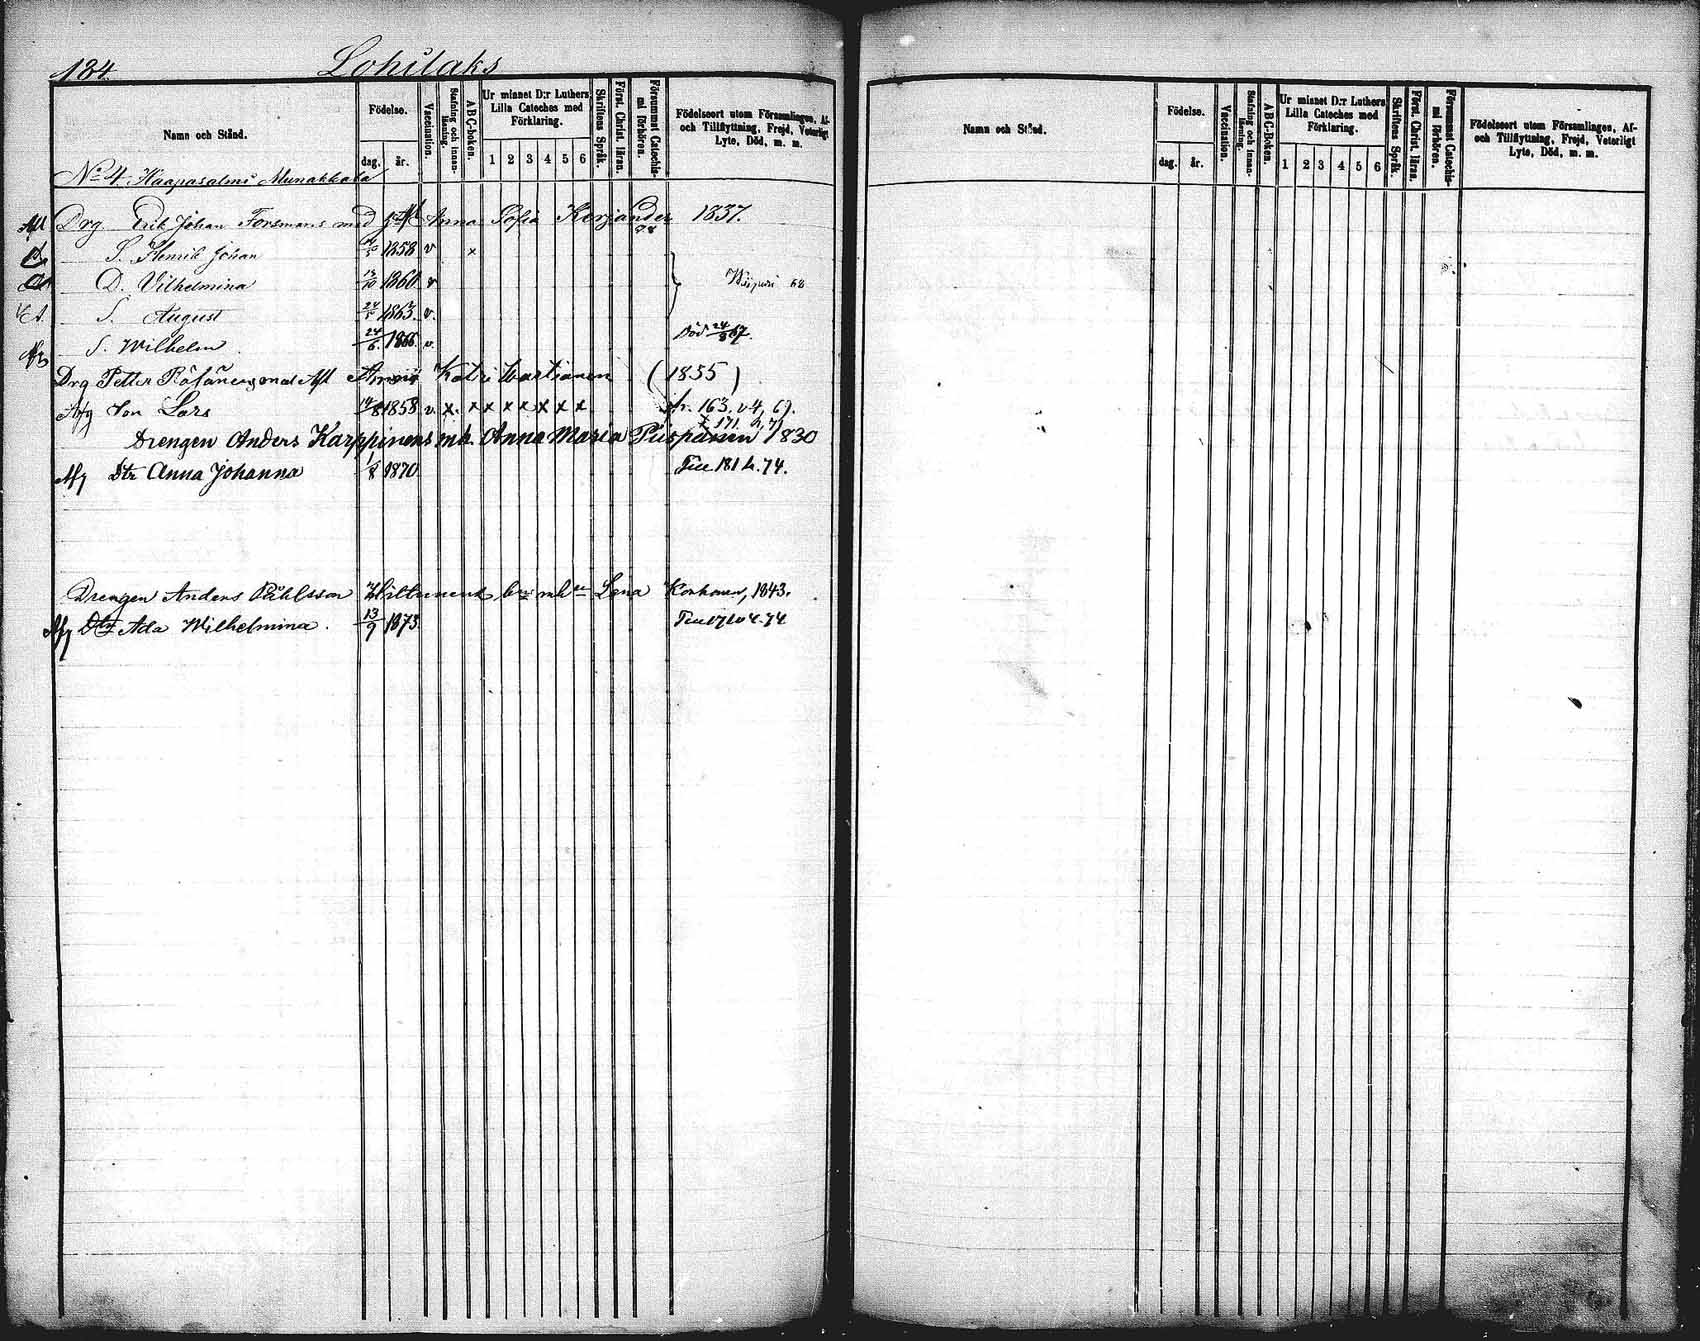 184. Lohilaks
Namn och Stånd.
Födelse.
dag. år.
Vaccination.
Stafning och innanläsning.
ABC-boken.
Ur minnet D:r Luthers Lilla Cateches med Förklaring.
1 2 3 4 5 6
Skriftens Språk.
Först. Christ. läran.
Försummat Catechismi förhören.
Födelseort utom Församlingen, Af- och Tillflyttning, Frejd, Veterligt Lyte, Död, m. m.
No 4 Haapasalmi Munakkala
Drg Erik Johan Forsmans med Anna Sofia Kerjander 1837.
S. Henrik Johan 1858 v x
D. Vilhelmina 13/10 1860 v Wiipuri 68
S. August 24/5 1863 v.
S. Wilhelm 24/6 1866 v. Död 24/8 67.
Drg Petter Räsänens med Katri Wartianen (1855)
Afg Son Lars 14/8 1858 v. x. x x x x x x x fr. 163. v 4, 69.
t. 171. h, 71
Drengen Anders Karppinens mh. Anna Maria Puspanen 1830
Afg Dtr Anna Johanna 1/8 1870 Till 181 h. 74.
Drengen Anders Påhlsson Hiltunens mh Lena Korhonen, 1843.
Afg Dtr Ada Wilhelmina. 13/9 1873 Till 171 v 4. 74
Namn och Stånd.
Födelse.
dag. år.
Vaccination.
Stafning och innanläsning.
ABC-boken.
Ur minnet D:r Luthers Lilla Cateches med Förklaring.
1 2 3 4 5 6
Skriftens Språk.
Först. Christ. läran.
Försummat Catechismi förhören.
Födelseort utom Församlingen, Af- och Tillflyttning, Frejd, Veterligt Lyte, Död, m. m.